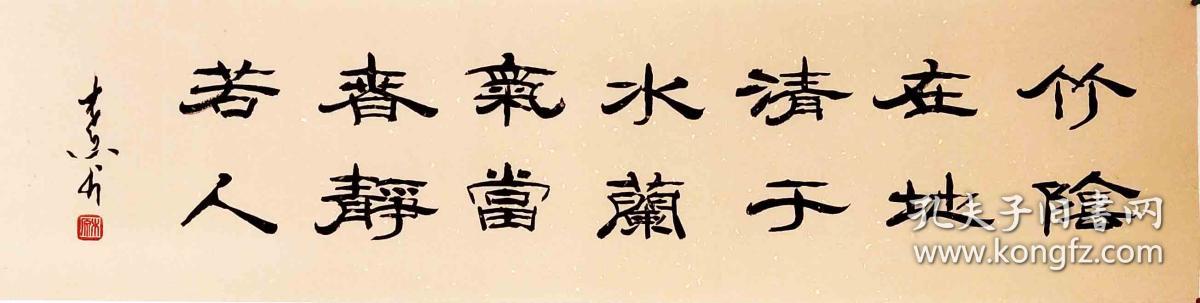 竹陰
在地
清于
水蘭
氣當
春靜
若人
孔夫子旧書网
www.kongfz.com